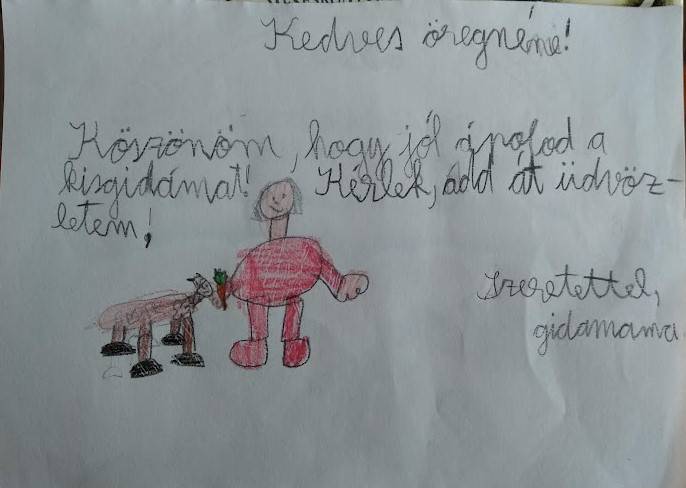 Kedves öregnéne!
Köszönöm, hogy jól ápolod a
kisgidámat! Kérlek, add át üdvöz-
letem!
Szeretettel,
gidamama